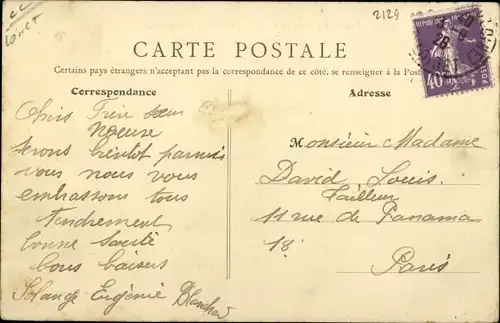 cc
Loiret
2129
CARTE POSTALE
Certains pays étrangers n'acceptant pas la correspondance de ce côté, se renseigner à la Poste
Correspondance
Adresse
Chers Frère sœur
Neveux
serons bientôt parmis
vous nous vous
embrassons tous
Tendrement
bonne santé
bons baisers
Solange Eugénie Blanchard
Monsieur Madame
David Louis
Tailleur
11 rue de Panama
18
Paris
40
28